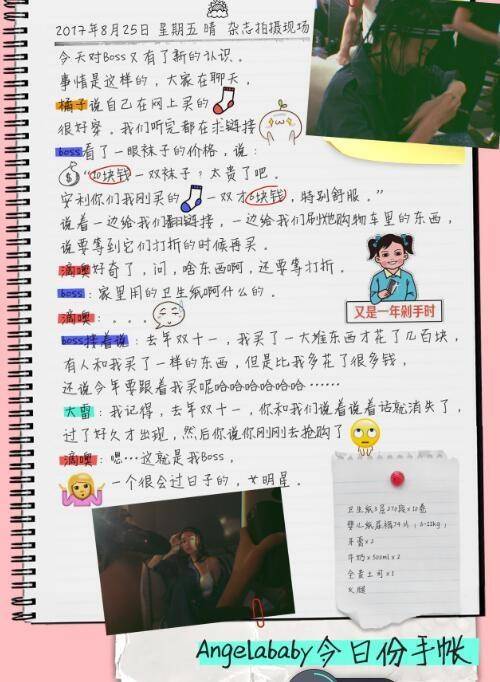 2017年8月25日 星期五 晴 杂志拍摄现场
今天对Boss又有了新的认识。
事情是这样的,大家在聊天,
橘子说自己在网上买的
很好穿。我们听完都在求链接
boss看了一眼袜子的价格,说:
$
“10块钱一双袜子?太贵了吧。
安利你们我刚买的 一双才6块钱,特别舒服。”
说着一边给我们翻链接,一边给我们刷她购物车里的东西,
说要等到它们打折的时候再买。
滴噢好奇了,问,啥东西啊,还要等打折。
boss:家里用的卫生纸啊什么的。
滴噢:。。。
又是一年剁手时
boss接着说:去年双十一,我买了一大堆东西才花了几百块,
有人和我买了一样的东西,但是比我多花了很多钱,
还说今年要跟着我买呢哈哈哈哈哈哈……
大雷:我记得,去年双十一,你和我们说着说着话就消失了,
过了好久才出现,然后你说你刚刚去抢购了
滴噢:嗯…这就是我Boss,
一个很会过日子的,女明星。
卫生纸3层270段×10卷
婴儿纸尿裤74片(6-11kg)
牙膏×2
牛奶×500ml×2
全麦土司×1
火腿
Angelababy今日份手帐